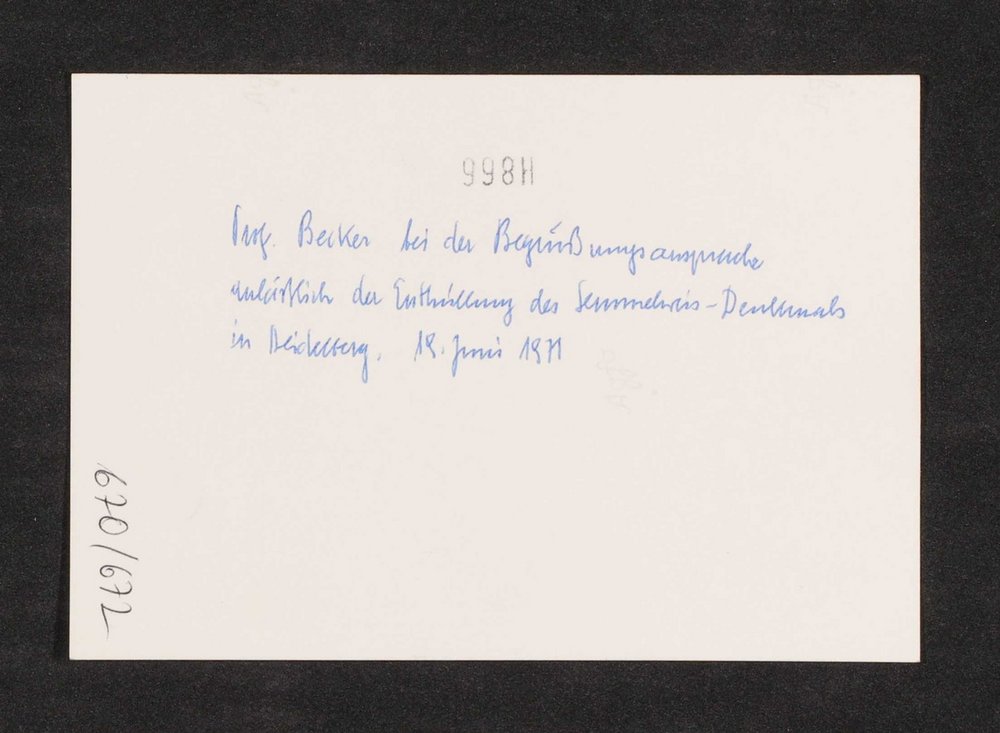 998H
Prof. Becker bei der Begrüßungsansprache
anläßlich der Enthüllung des Semmelweis-Denkmals
in Heidelberg. 19. Juni 1971
670/671